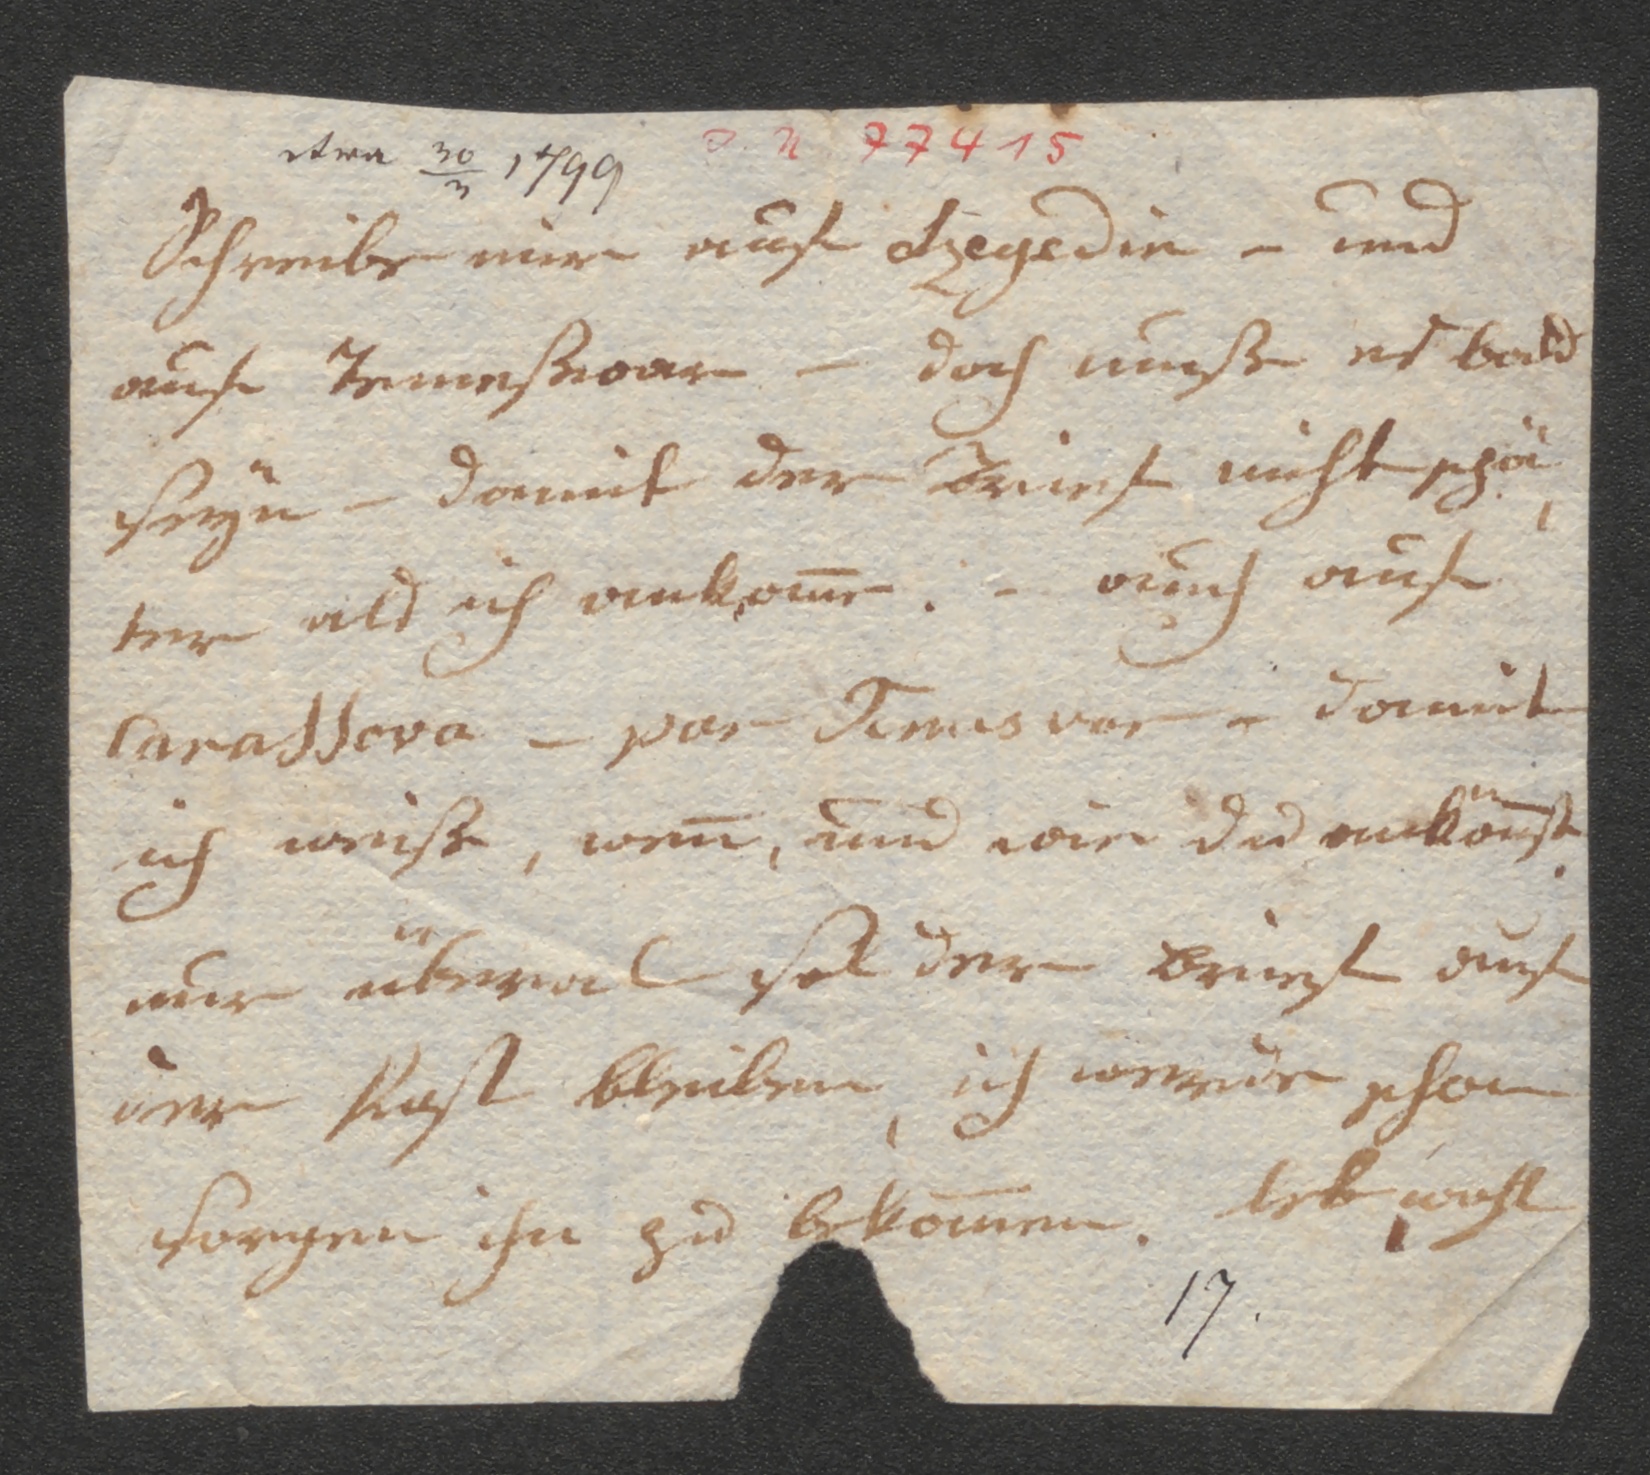 etwa 30/3 1799
I. N 77415
Schreibe mir auf Szegedin - und
auf Temeßwar - doch muße es bald
seyn - damit der Brief nicht spä,
ter als ich ankom̅e. - auch auf
Carassova - par Temesvar - damit
ich weiß, wen̅, und wie du ankom̅st.
nur überal sol der Brief auf
der Post bleiben, ich werde schon
sorgen ihn zu bekom̅en. leb wohl
17.